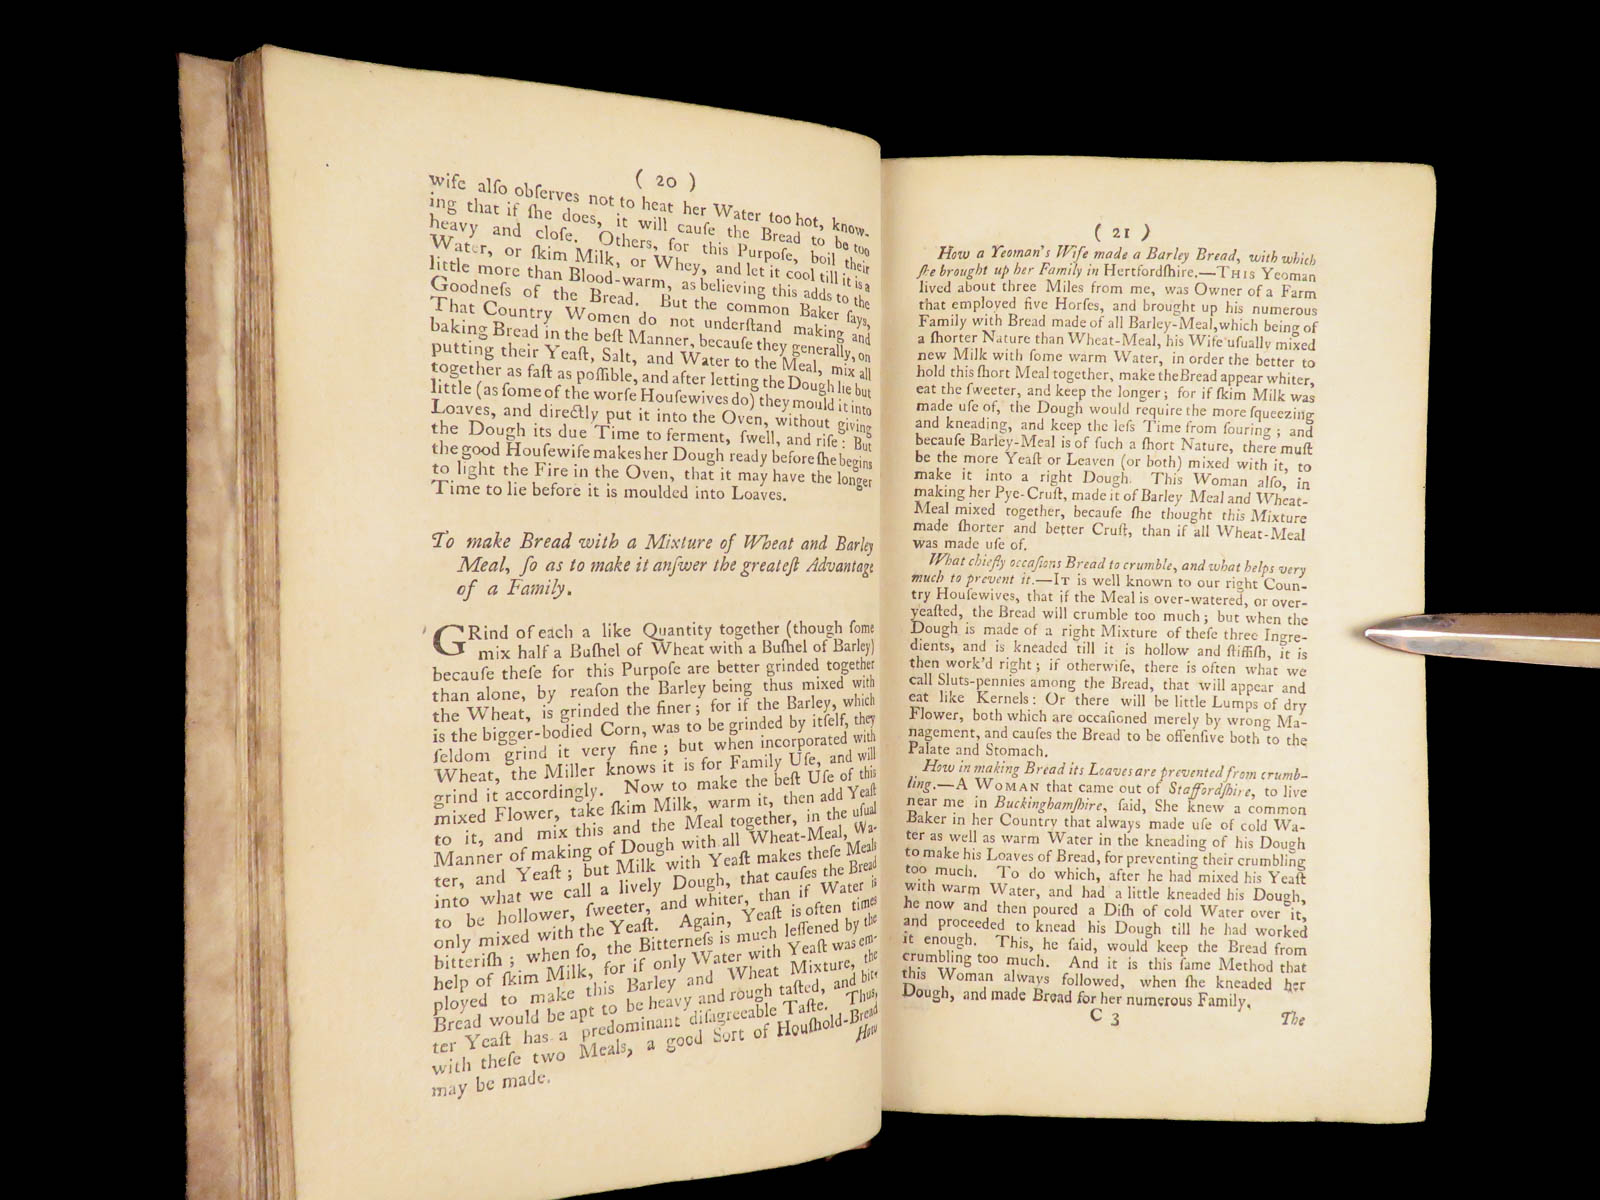 ( 20 )
wife alſo obſerves not to heat her Water too hot, know-
ing that if ſhe does, it will cauſe the Bread to be too
heavy and cloſe. Others, for this Purpoſe, boil their
Water, or ſkim Milk, or Whey, and let it cool till it is a
little more than Blood-warm, as believing this adds to the
Goodneſs of the Bread. But the common Baker ſays,
That Country Women do not underſtand making and
baking Bread in the beſt Manner, becauſe they generally, on
putting their Yeaſt, Salt, and Water to the Meal, mix all
together as faſt as poſſible, and after letting the Dough lie but
little (as ſome of the worſe Houſewives do) they mould it into
Loaves, and directly put it into the Oven, without giving
the Dough its due Time to ferment, ſwell, and riſe : But
the good Houſewife makes her Dough ready before ſhe begins
to light the Fire in the Oven, that it may have the longer
Time to lie before it is moulded into Loaves.
To make Bread with a Mixture of Wheat and Barley
Meal, ſo as to make it anſwer the greateſt Advantage
of a Family.
GRind of each a like Quantity together (though ſome
mix half a Buſhel of Wheat with a Buſhel of Barley)
becauſe theſe for this Purpoſe are better grinded together
than alone, by reaſon the Barley being thus mixed with
the Wheat, is grinded the finer ; for if the Barley, which
is the bigger-bodied Corn, was to be grinded by itſelf, they
ſeldom grind it very fine ; but when incorporated with
Wheat, the Miller knows it is for Family Uſe, and will
grind it accordingly. Now to make the beſt Uſe of this
mixed Flower, take ſkim Milk, warm it, then add Yeaſt
to it, and mix this and the Meal together, in the uſual
Manner of making of Dough with all Wheat-Meal, Wa-
ter, and Yeaſt ; but Milk with Yeaſt makes theſe Meals
into what we call a lively Dough, that cauſes the Bread
to be hollower, ſweeter, and whiter, than if Water is
only mixed with the Yeaſt. Again, Yeaſt is often times
bitteriſh ; when ſo, the Bitterneſs is much leſſened by the
help of ſkim Milk, for if only Water with Yeaſt was em-
ployed to make this Barley and Wheat Mixture, the
Bread would be apt to be heavy and rough taſted, and bit-
ter Yeaſt has a predominant diſagreeable Taſte. Thus,
with theſe two Meals, a good Sort of Houſhold-Bread
may be made.
How
( 21 )
How a Yeoman's Wife made a Barley Bread, with which
ſhe brought up her Family in Hertfordſhire.—THIS Yeoman
lived about three Miles from me, was Owner of a Farm
that employed five Horſes, and brought up his numerous
Family with Bread made of all Barley-Meal, which being of
a ſhorter Nature than Wheat-Meal, his Wife uſually mixed
new Milk with ſome warm Water, in order the better to
hold this ſhort Meal together, make the Bread appear whiter,
eat the ſweeter, and keep the longer ; for if ſkim Milk was
made uſe of, the Dough would require the more ſqueezing
and kneading, and keep the leſs Time from ſouring ; and
becauſe Barley-Meal is of ſuch a ſhort Nature, there muſt
be the more Yeaſt or Leaven (or both) mixed with it, to
make it into a right Dough. This Woman alſo, in
making her Pye-Cruſt, made it of Barley Meal and Wheat-
Meal mixed together, becauſe ſhe thought this Mixture
made ſhorter and better Cruſt, than if all Wheat-Meal
was made uſe of.
What chiefly occaſions Bread to crumble, and what helps very
much to prevent it.—IT is well known to our right Coun-
try Houſewives, that if the Meal is over-watered, or over-
yeaſted, the Bread will crumble too much ; but when the
Dough is made of a right Mixture of theſe three Ingre-
dients, and is kneaded till it is hollow and ſtiffiſh, it is
then work'd right ; if otherwiſe, there is often what we
call Sluts-pennies among the Bread, that will appear and
eat like Kernels : Or there will be little Lumps of dry
Flower, both which are occaſioned merely by wrong Ma-
nagement, and cauſes the Bread to be offenſive both to the
Palate and Stomach.
How in making Bread its Loaves are prevented from crumb-
ling.—A WOMAN that came out of Staffordſhire, to live
near me in Buckinghamſhire, ſaid, She knew a common
Baker in her Country that always made uſe of cold Wa-
ter as well as warm Water in the kneading of his Dough
to make his Loaves of Bread, for preventing their crumbling
too much. To do which, after he had mixed his Yeaſt
with warm Water, and had a little kneaded his Dough,
he now and then poured a Diſh of cold Water over it,
and proceeded to knead his Dough till he had worked
it enough. This, he ſaid, would keep the Bread from
crumbling too much. And it is this ſame Method that
this Woman always followed, when ſhe kneaded her
Dough, and made Bread for her numerous Family.
C 3
The